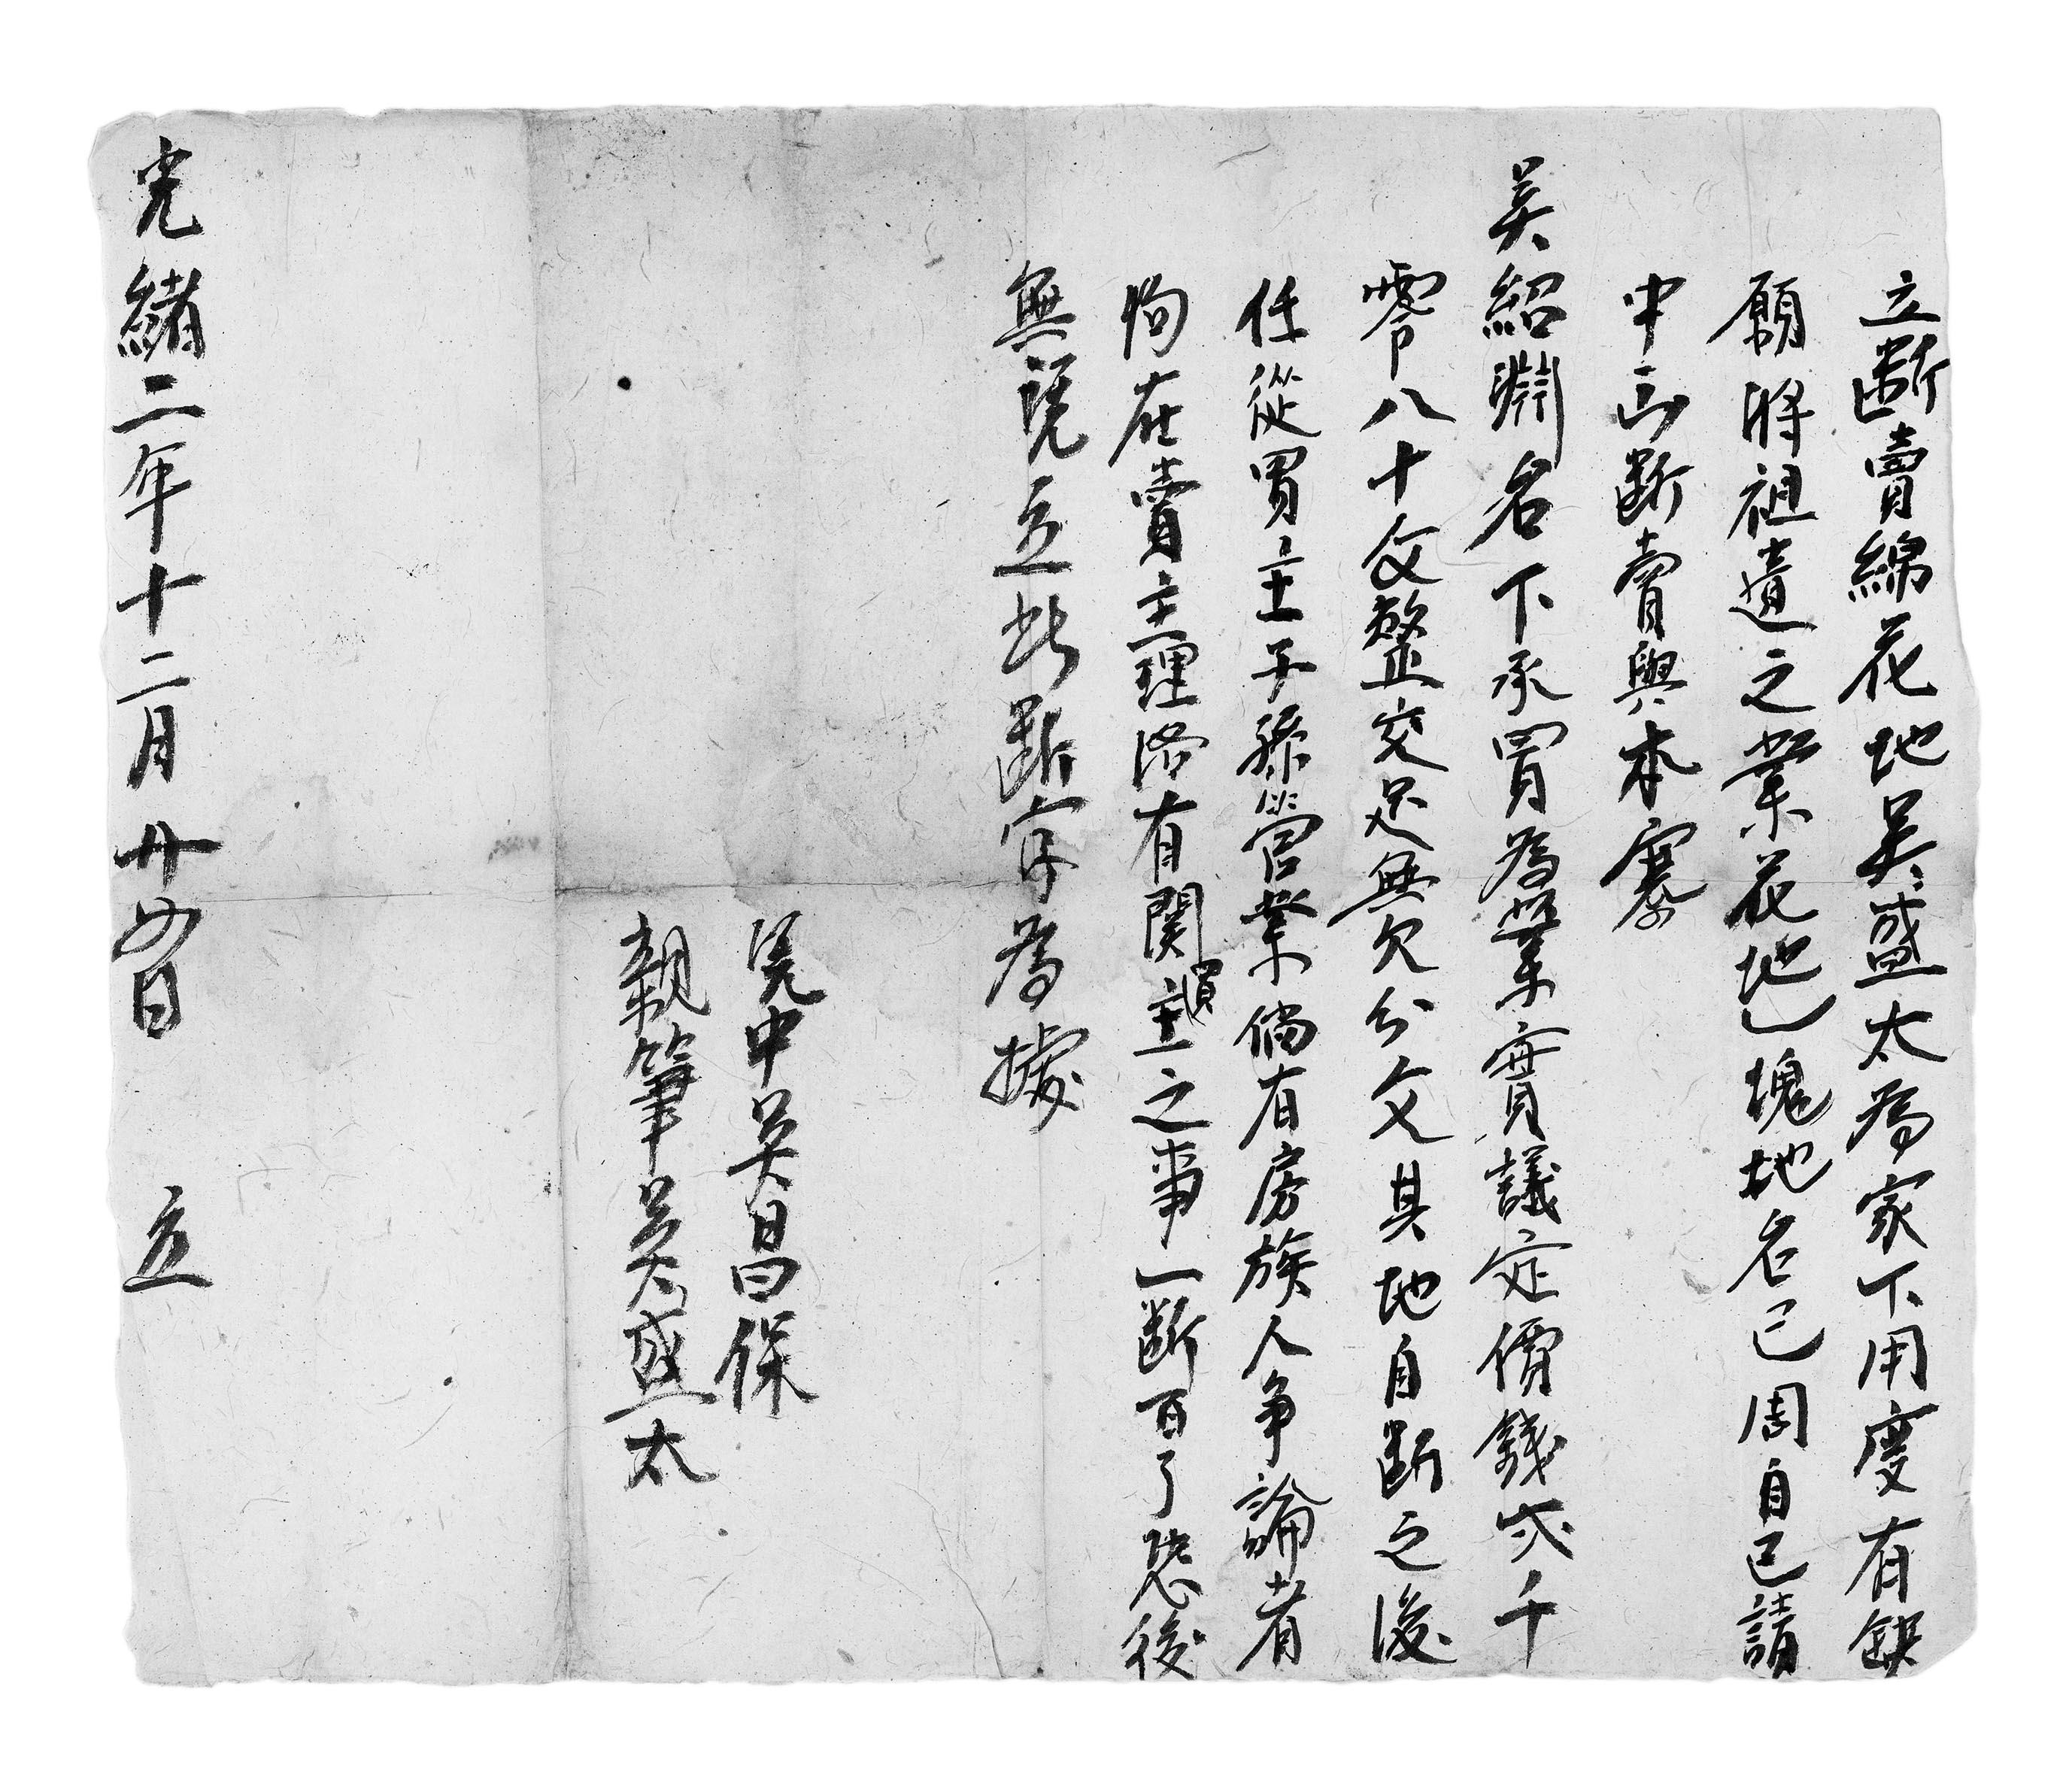 立断賣綿花地吴盛太為家下用度有缺
願將祖遺之業花地乚塊地名已周自己請
中 断賣與本寨
吴紹淵名下承買為業實議定價錢弍千
零八十文整交足無欠分文其地自断之後
任從買主子孫管業倘有房族人争論者
俱在賣主理落有関買主之事一断百了恐後
無憑立此断字為據
憑中吴昌保
親筆吴盛太
光緒二年十二月廿四日 立